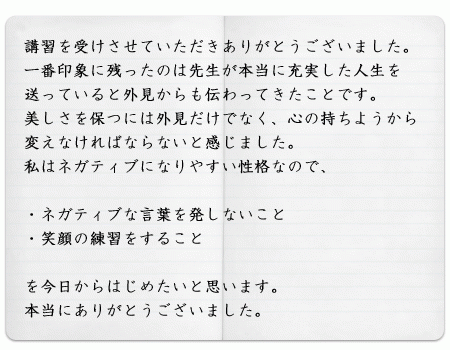 講習を受けさせていただきありがとうございました。
一番印象に残ったのは先生が本当に充実した人生を
送っていると外見からも伝わってきたことです。
美しさを保つには外見だけでなく、心の持ちようから
変えなければならないと感じました。
私はネガティブになりやすい性格なので、
・ネガティブな言葉を発しないこと
・笑顔の練習をすること
を今日からはじめたいと思います。
本当にありがとうございました。